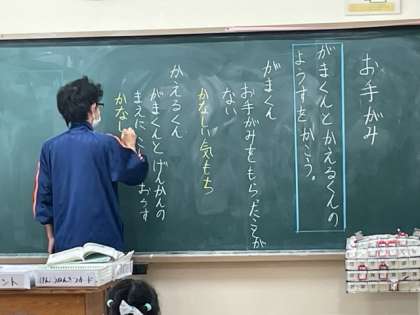 お手がみ
がまくんとかえるくんの
ようすをかこう。
がまくん
お手がみをもらったことが
ない
かなしい気もち
かえるくん
がまくんとげんかんの
まえに
かなし